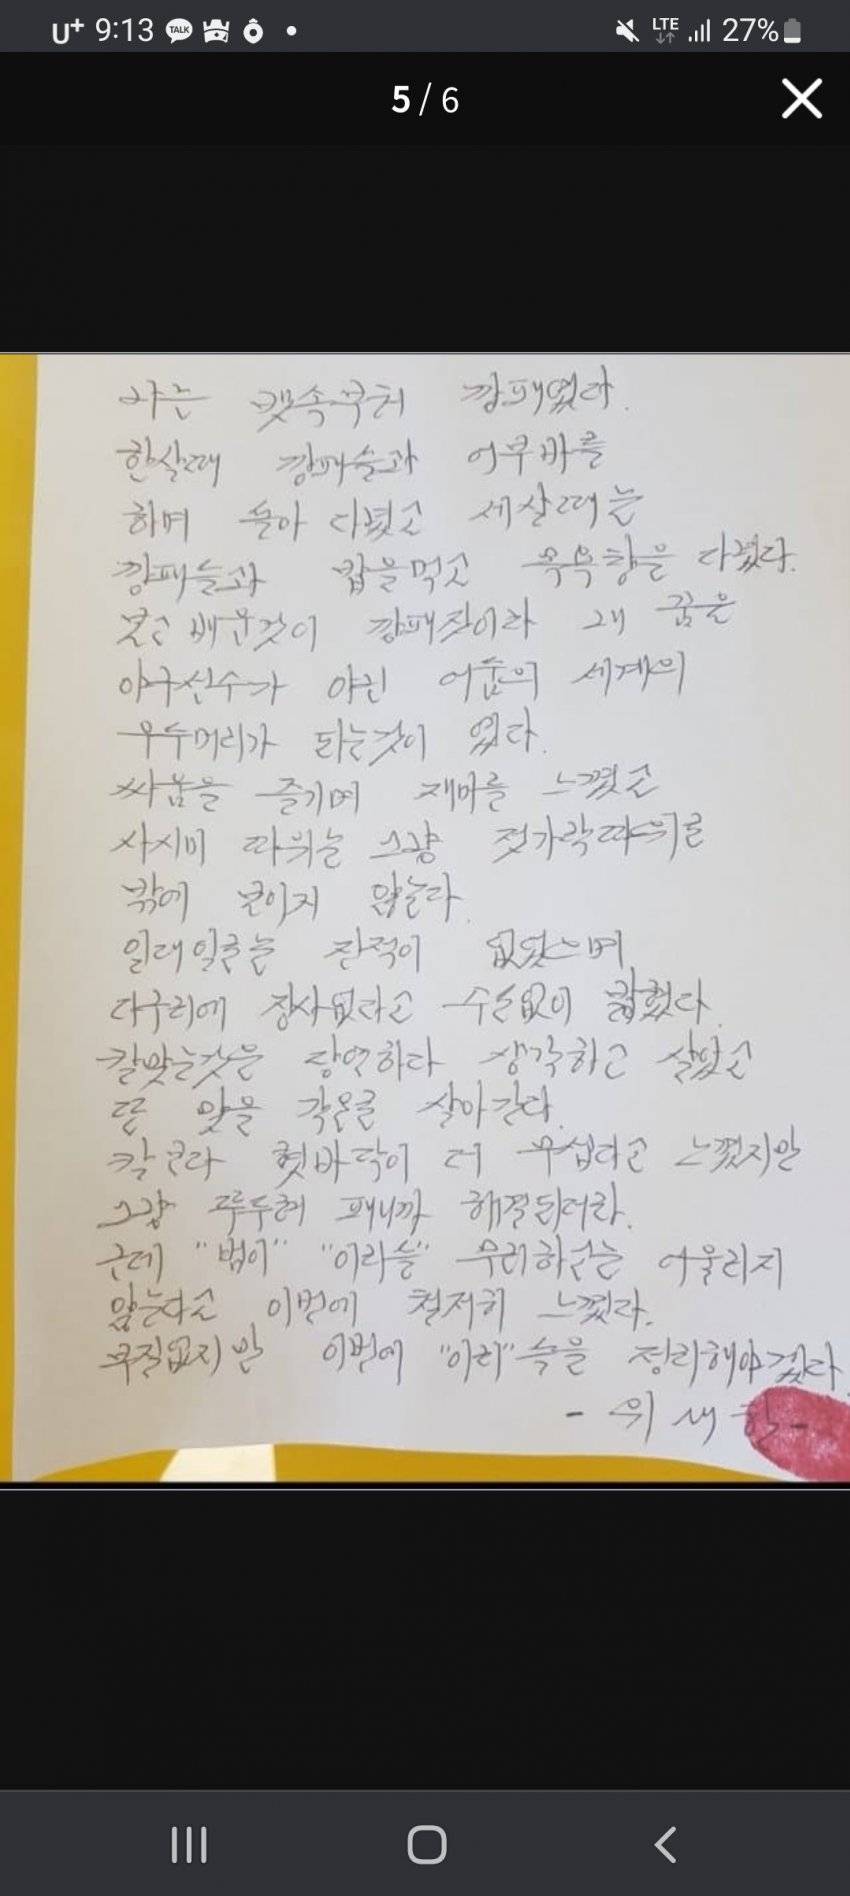 U+ 9:13 TALK LTE 27%
5 / 6
나는 뱃속부터 깡패였다.
한살때 깡패들과 어부바를
하며 돌아 다녔고 세살때는
깡패들과 밥을먹고 목욕탕을 다녔다.
보고 배운것이 깡패짓이라 내 꿈은
야구선수가 아닌 어둠의 세계의
우두머리가 되는것이 였다.
싸움을 즐기며 재미를 느꼈고
사시미 따위는 그냥 젓가락따위로
밖에 보이지 않는다.
일대일로는 진적이 없었으며
다구리에 장사없다고 수도없이 칼혔다.
칼맞는것을 당연하다 생각하고 살았고
또 맞을 각오로 살아간다.
칼보다 혓바닥이 더 무섭다고 느꼈지만
그냥 후두려 패니까 해결되더라.
근데 "범이" "이리들" 무리하고는 어울리지
않는다고 이번에 철저히 느꼈다.
부질없지만 이번에 "이리"속을 정리해야겠다
- 위 -